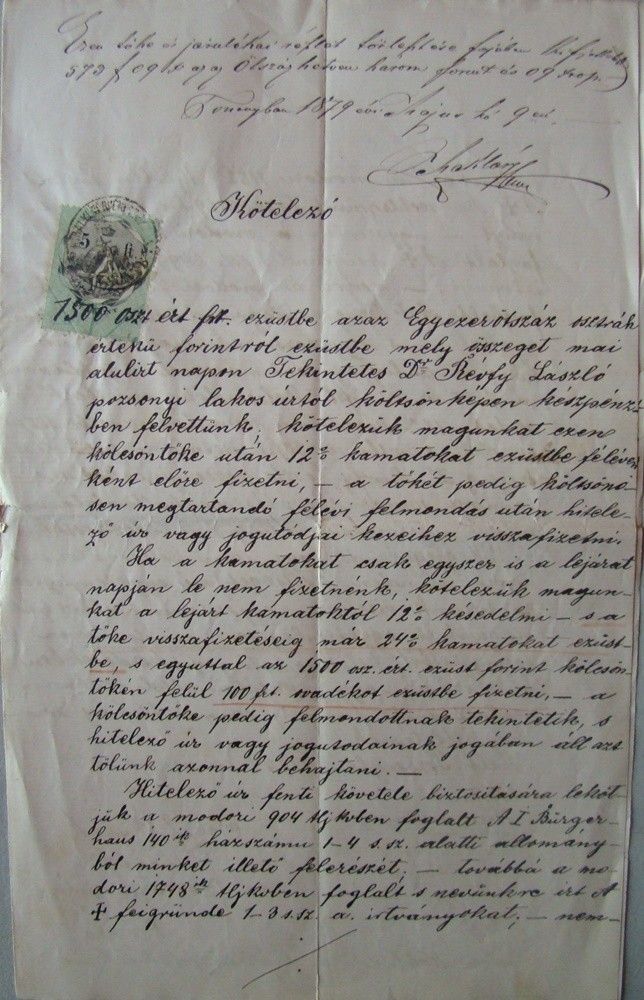 Ezen tőke és járulékai
573 f 09 x azaz Ötszázhetven három forint és 09
1879 évi Május hó 9én
Kötelező
1500 oszt ért frt. ezüstbe azaz Egyezerötszáz osztrák
értekü forintról ezüstbe mely összeget mai
alulirt napon Tekintetes Dr László
pozsonyi lakos úrtól költsönképen keszpénz
ben felvettünk. kötelezük magunkat ezen
kölcsöntöke után 12% kamatokat ezüstbe féléven
ként előre fizetni, — a tőkét pedig kölcsönö
sen megtartandó félévi felmondás után hitele
ző úr vagy jogutódjai kezeihez visszafizetni.
Ha a kamatokat csak egyszer is a lejárat
napján le nem fizetnénk, kötelezük magun
kat a lejárt kamatoktól 12% késedelmi — s a
tőke visszafizeteseig már 24% kamatokat ezüst-
be, s egyuttal az 1500 osz. ért. ezüst forint kölcsön
tőkén felül 100 ft. svadékot ezüstbe fizetni, — a
kölcsöntőke pédig felmondottnak tekintetik, s
hitelező úr vagy jogutodainak jogában áll azt
tőlünk azonnal behajtani. —
Hitelező úr fenti követele biztositására leköt
jük a modori 904 tljkvben foglalt A I Bürger
haus 140 ik házszámu 1–4 s.sz. alatti allomány
ból minket illető felerészet, — továbbá a mo
dori 1748 ik tljkvben foglalt s nevünkre irt A
† feigründe 1–3 s.sz. a. irtványokat; — nem-